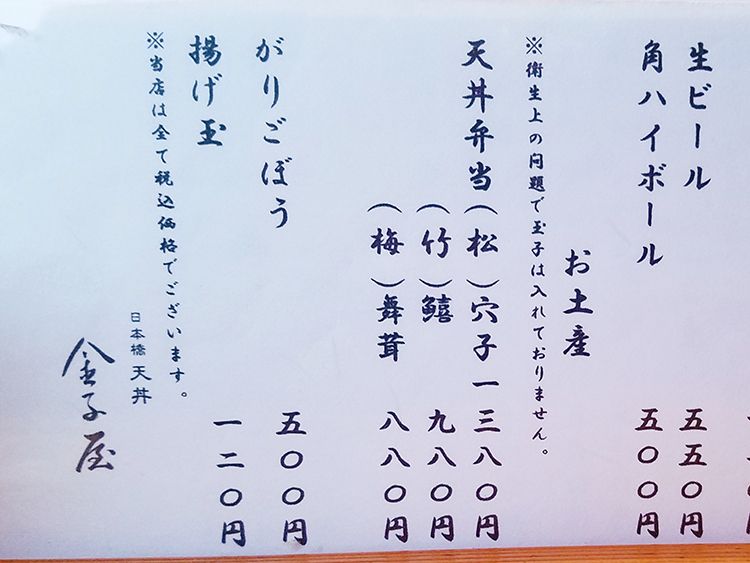 生ビール 五五〇円
角ハイボール 五〇〇円
お土産
※衛生上の問題で玉子は入れておりません。
天丼弁当(松)穴子 一三八〇円
(竹)鱚 九八〇円
(梅)舞茸 八八〇円
がりごぼう 五〇〇円
揚げ玉 一二〇円
※当店は全て税込価格でございます。
日本橋 天丼
金子屋